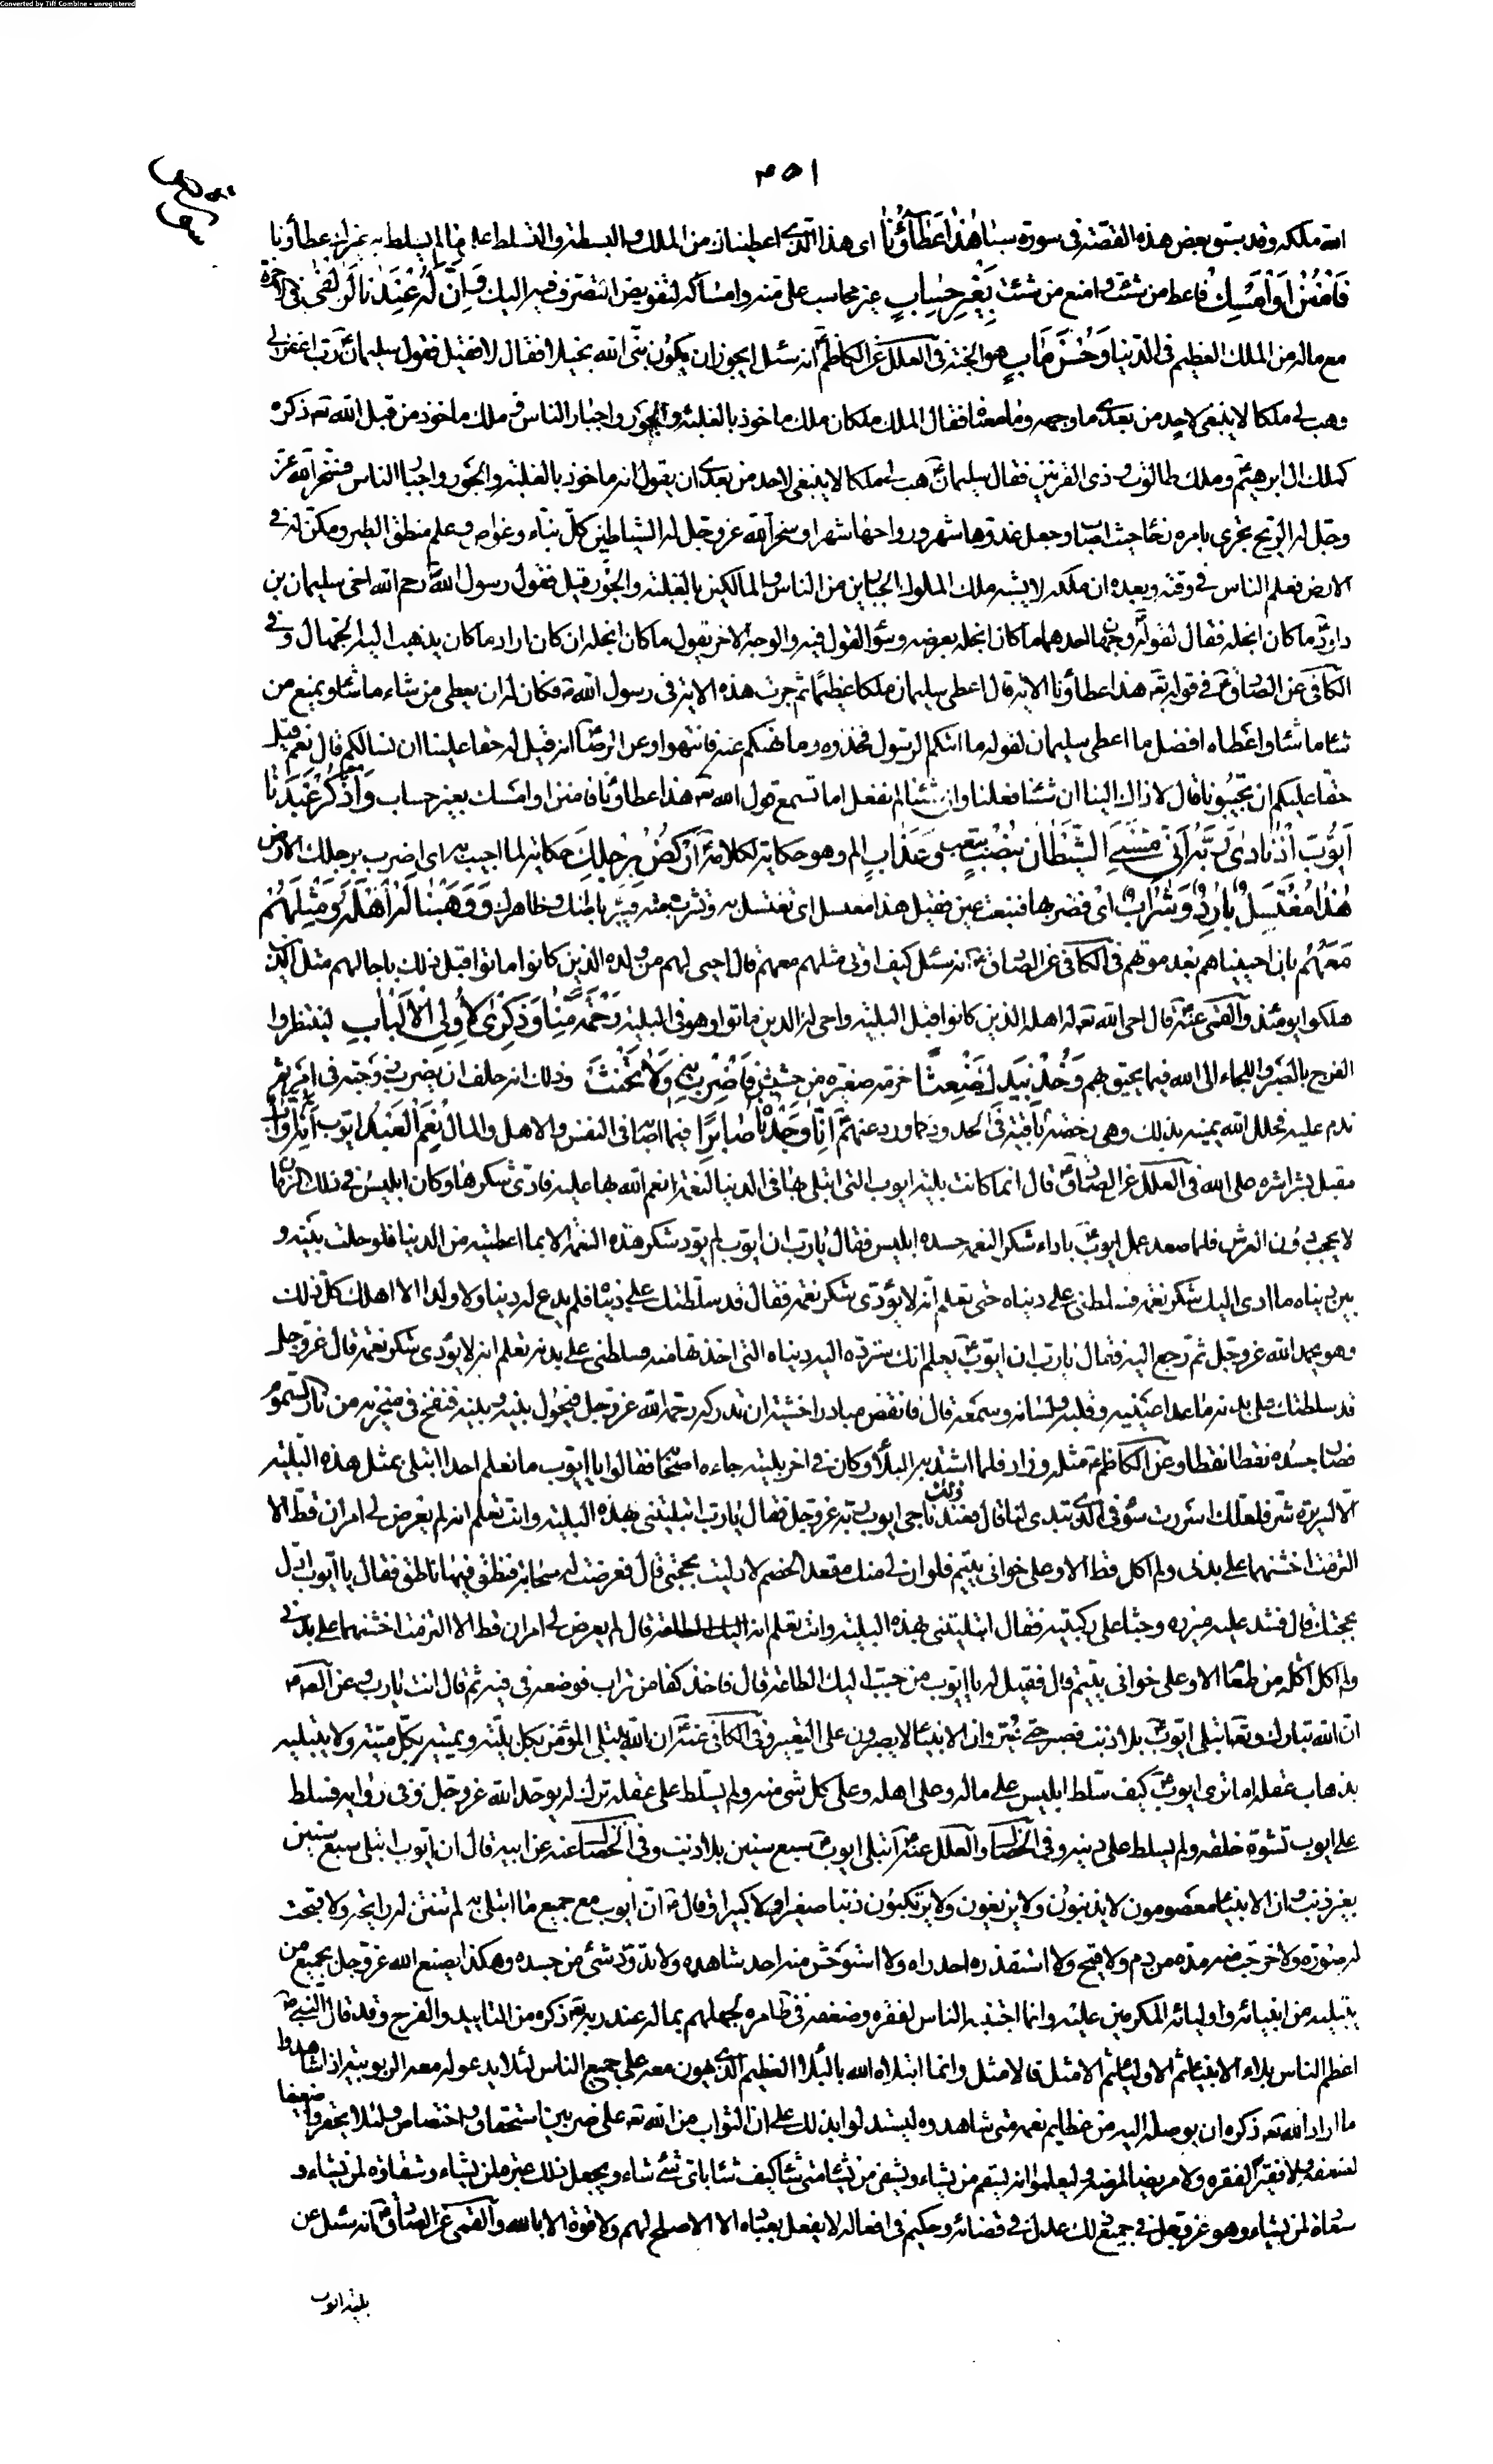 Converted by Tiff Combine - unregistered
٤٥١
الله ملكه وقد سبق بعض هذه القصة في سورة سبا هٰذا عَطٰآؤُنٰا اى هذا الذى اعطيناك من الملك والبسطة والتسلط على ما لم يسلط به غيرك عطاؤنا
فَامْنُنْ اَوْ اَمْسِكْ فاعط من شئت وامنع من شئت بِغَيْرِ حِسٰابٍ غير محاسب على منه وامساكه لتفويض التصرف فيه اليك وَاِنَّ لَهُ عِنْدَنٰا لَزُلْفىٰ فى الاخرة
مع ماله من الملك العظيم فى الدنيا وَحُسْنَ مَاٰبٍ هو الجنة فى العلل عن الكاظم انه سئل ايجوز ان يكون نبى الله بخيلا فقال لا فقيل فقول سليمان رب اغفر لى
وهب لى ملكا لا ينبغى لاحد من بعدى ما وجهه وما معناه فقال الملك ملكان ملك ماخوذ بالغلبة والجور واجبار الناس وملك ماخوذ من قبل الله تع ذكره
كملك ال ابرهيم وملك طالوت وذى القرنين فقال سليمان هب لى ملكا لا ينبغى لاحد من بعدى ان يقول انه ماخوذ بالغلبة والجور واجبار الناس فسخر الله عز
وجل له الريح تجرى بامره رخاء حيث اصاب وجعل غدوها شهر ورواحها شهرا وسخر الله عز وجل له الشياطين كل بناء وغواص وعلم منطق الطير ومكن له فى
الارض فعلم الناس فى وقته وبعده ان ملكه لا يشبه ملك الملوك الجبارين من الناس والمالكين بالغلبة والجور قيل فقول رسول الله رحم الله اخى سليمان بن
داود ما كان ابخله فقال لقوله وجهان احدهما ما كان ابخله بعرضه وسوء القول فيه والوجه الاخر يقول ما كان ابخله ان كان اراد ما كان يذهب اليه الجهال وفى
الكافى عن الصادق فى قوله تع هذا عطاؤنا الاية قال اعطى سليمان ملكا عظيما ثم جرت هذه الاية فى رسول الله ص فكان له ان يعطى من شاء ما شاء ويمنع من
شاء ما شاء واعطاه افضل مما اعطى سليمان لقوله ما اتيكم الرسول فخذوه وما نهيكم عنه فانتهوا وعن الرضا انه قيل له حقا علينا ان نسالكم قال نعم قيل
حقا عليكم ان تجيبونا قال لا ذاك الينا ان شئنا فعلنا وان شئنا لم نفعل اما تسمع قول الله تع هذا عطاؤنا فامنن او امسك بغير حساب وَاذْكُرْ عَبْدَنٰا
اَيُّوبَ اِذْ نٰادىٰ رَبَّهُ اَنّى مَسَّنِىَ الشَّيْطٰانُ بِنُصْبٍ بتعب وَعَذٰابٍ الم وهو حكاية لكلامه اُرْكُضْ بِرِجْلِكَ حكاية لما اجيب به اى اضرب برجلك الارض
هٰذٰا مُغْتَسَلٌ بٰارِدٌ وَشَرٰابٌ اى فضربها فنبعت عين فقيل هذا مغتسل اى تغتسل به وتشرب منه فيبرء باطنك وظاهرك وَوَهَبْنٰا لَهُ اَهْلَهُ وَمِثْلَهُمْ
مَعَهُمْ بان احييناهم بعد موتهم فى الكافى عن الصادق انه سئل كيف اوتى مثلهم معهم قال احيى لهم من ولده الذين كانوا ماتوا قبل ذلك باجالهم مثل الذين
هلكوا يومئذ والقمى عنه قال احيى الله تع له اهله الذين كانوا قبل البلية واحيى له الذين ماتوا وهو فى البلية رَحْمَةً مِنّٰا وَذِكْرىٰ لِاُولِى الْاَلْبٰابِ لينتظروا
الفرج بالصبر واللجاء الى الله فيما يحيق بهم وَخُذْ بِيَدِكَ ضِغْثًا حزمة صغيرة من خشب فَاضْرِبْ بِهِ وَلٰا تَحْنَثْ وذلك انه حلف ان يضرب زوجته فى امر ثم
ندم عليه فحلل الله يمينه بذلك وهى رخصة باقية فى الحدود كما ورد عنهم اِنّٰا وَجَدْنٰاهُ صٰابِرًا فيما اصابه فى النفس والاهل والمال نِعْمَ الْعَبْدُ ايوب اِنَّهُ اَوّٰابٌ
مقبل بشراشره على الله فى العلل عن الصادق قال انما كانت بلية ايوب التى ابتلى بها فى الدنيا لنعمة انعم الله بها عليه فادى شكرها وكان ابليس فى ذلك الزمان
لا يحجب دون العرش فلما صعد عمل ايوب باداء شكر النعمة حسده ابليس فقال يا رب ان ايوب لم يؤد شكر هذه النعمة الا بما اعطيته من الدنيا فلو حلت بينه و
بين دنياه ما ادى اليك شكر نعمة فسلطنى على دنياه حتى تعلم انه لا يؤدى شكر نعمة فقال قد سلطتك على دنياه فلم يدع له دنيا ولا ولدا الا اهلك كل ذلك
وهو يحمد الله عز وجل ثم رجع اليه فقال يا رب ان ايوب يعلم انك سترد اليه دنياه التى اخذتها منه فسلطنى على بدنه تعلم انه لا يؤدى شكر نعمة قال عز وجل
قد سلطتك على بدنه ما عدا عينيه وقلبه ولسانه وسمعه قال فانقض مبادرا خشية ان تدركه رحمة الله عز وجل فيحول بينه وبينه فنفخ فى منخريه من نار السموم
فصار جسده نقطا نقطا وعن الكاظم مثله وزاد فلما اشتد به البلاء وكان فى اخر بليته جاءه اصحابه فقالوا يا ايوب ما نعلم احدا ابتلى بمثل هذه البلية
الا لسريرة شر فلعلك اسررت سوء فى الذى تبدى لنا قال فعند ذلك ناجى ايوب ربه عز وجل فقال يا رب ابتليتنى بهذه البلية وانت تعلم انه لم يعرض لى امران قط الا
الزمت اخشنهما على بدنى ولم اكل قط الا وعلى خوانى يتيم فلو ان لى منك مقعد الخصم لادليت بحجتى قال فعرضت له سحابة فنطق فيها ناطق فقال يا ايوب ادل
بحجتك قال فشد عليه ميزره وجثا على ركبتيه فقال ابتليتنى بهذه البلية وانت تعلم انه لم يعرض لى امران قط الا الزمت اخشنهما على بدنى
ولم اكل اكلة من طعام الا وعلى خوانى يتيم قال فقيل له يا ايوب من حبب اليك الطاعة قال فاخذ كفا من تراب فوضعه فى فيه ثم قال انت يا رب وعن الصادق
ان الله تبارك وتع ابتلى ايوب بلا ذنب فصبر حتى عير وان الانبياء لا يصبرون على التعيير وفى الكافى عنه ان الله يبتلى المؤمن بكل بلية ويميته بكل ميتة ولا يبتليه
بذهاب عقله اما ترى ايوب كيف سلط ابليس على ماله وعلى اهله وعلى كل شى منه ولم يسلط على عقله ترك له يوحد الله عز وجل وفى رواية فسلط
على ايوب فشوه خلقه ولم يسلط على دينه وفى الخصال والعلل عنه ابتلى ايوب سبع سنين بلا ذنب وفى الخصال عنه عن ابيه قال ان ايوب ابتلى سبع سنين
بغير ذنب وان الانبياء معصومون لا يذنبون ولا يزيغون ولا يرتكبون ذنبا صغيرا ولا كبيرا وقال ان ايوب مع جميع ما ابتلى به لم تنتن له رايحة ولا قبحت
له صورة ولا خرجت منه مدة من دم ولا قيح ولا استقذره احد راه ولا استوحش منه احد شاهده ولا تدود شئ من جسده وهكذا يصنع الله عز وجل بجميع من
يبتليه من انبيائه واوليائه المكرمين عليه وانما اجتنبه الناس لفقره وضعفه فى ظاهره لجهلهم بماله عند ربه تع ذكره من التاييد والفرج وقد قال النبى ص
اعظم الناس بلاء الانبياء ثم الاولياء ثم الامثل فالامثل وانما ابتلاه الله بالبلاء العظيم الذى يهون معه على جميع الناس لئلا يدعوا له معه الربوبية اذا شاهدوا
ما اراد الله تع ذكره ان يوصله اليه من عظايم نعمه متى شاهدوه ليستدلوا بذلك على ان الثواب من الله تع على ضربين استحقاق واختصاص ولئلا يحقروا ضعيفا
لضعفه ولا فقيرا لفقره ولا مريضا لمرضه وليعلموا انه يسقم من يشاء ويشفى من يشاء متى شاء كيف شاء باى شئ شاء ويجعل ذلك عبرة لمن يشاء وشقاوة لمن يشاء و
سعادة لمن يشاء وهو عز وجل فى جميع ذلك عدل فى قضائه وحكيم فى افعاله لا يفعل بعباده الا الاصلح لهم ولا قوة الا بالله والقمى عن الصادق انه سئل عن
بلية ايوب